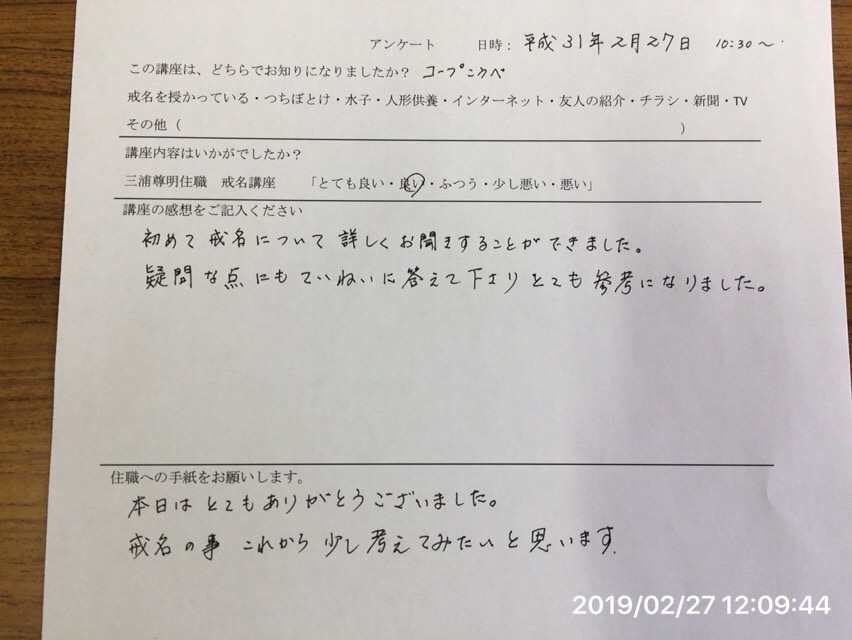 アンケート 日時: 平成31年2月27日 10:30~
この講座は、どちらでお知りになりましたか? コープこうべ
戒名を授かっている・つちぼとけ・水子・人形供養・インターネット・友人の紹介・チラシ・新聞・TV
その他( )
講座内容はいかがでしたか?
三浦尊明住職 戒名講座 「とても良い・良い・ふつう・少し悪い・悪い」
講座の感想をご記入ください
初めて戒名について詳しくお聞きすることができました。
疑問な点にもていねいに答えて下さりとても参考になりました。
住職への手紙をお願いします。
本日はとてもありがとうございました。
戒名の事 これから少し考えてみたいと思います.
2019/02/27 12:09:44